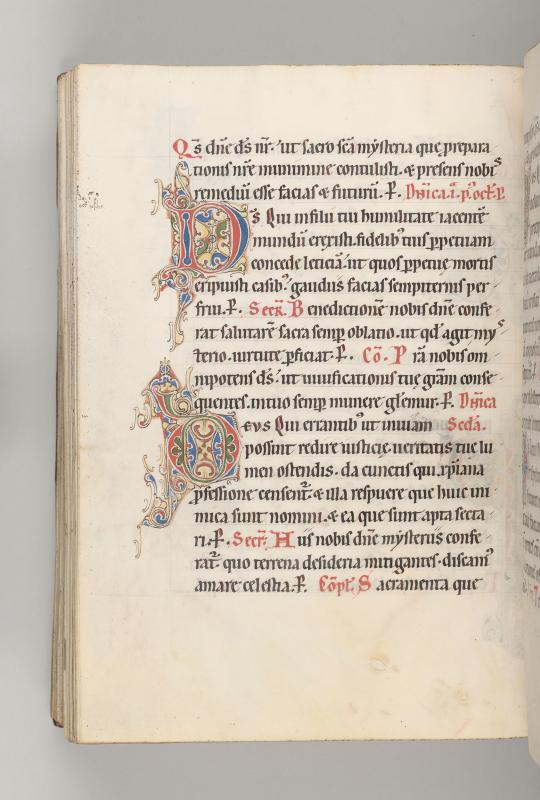 Qs̄ dn̄e ds̄ nr̄. ut sacro sc̄a mysteria que prepara
tionis nr̄e munimine contulisti. & presens nobis
remediū esse facias & futurū. P̄. Dn̄ica.i. p' oct̄. P.
Ds̄ Qui in filii tui humilitate iacentē
mundū erexisti. fidelib' tuis ꝑpetuam
concede leticiā. ut quos ꝑpetue mortis
eripuisti casib'. gaudiis facias sempiternis per
frui. P̄. Secr̄. Benedictionē nobis dn̄e confe
rat salutarē sacra semꝑ oblatio. ut qd' agit mys
terio. uirtute ꝑficiat. P̄. Cō. Prā nobis om
nipotens ds̄. ut uiuificationis tuę grām conse
quentes. in tuo semꝑ munere gl̄emur. P̄. Dn̄ica
Deus Qui errantib' ut in uiam Scd̄a.
possint redire iusticię. ueritatis tuę lu
men ostendis. da cunctis qui xp̄iana
ꝓfessione censent̄. & illa respuere que huic ini
mica sunt nomini. & ea que sunt apta secta
ri. P̄. Secr̄. Hiis nobis dn̄e mysteriis confe
rat̄. quo terrena desideria mitigantes. discam'
amare celestia. P̄. Cōpl̄. Sacramenta que